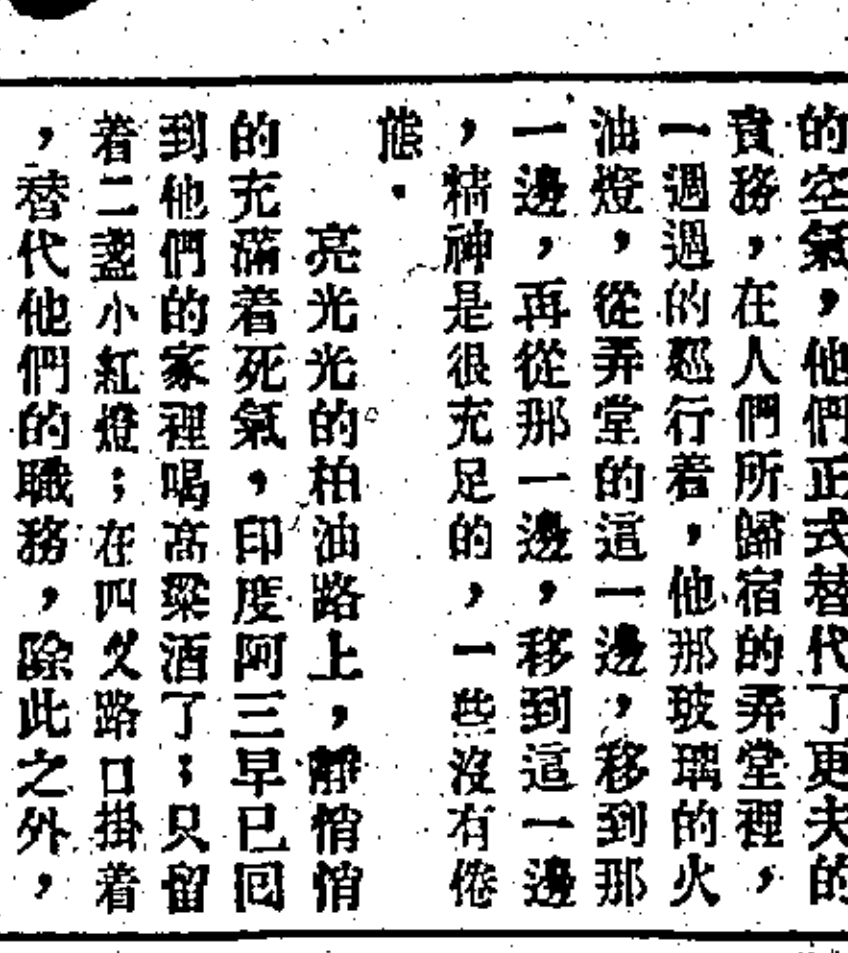 的空氣，他們正式替代了更夫的
責務，在人們所歸宿的弄堂裡，
一週週的廵行着，他那玻璃的火
油燈，從弄堂的這一邊，移到那
一邊，再從那一邊，移到這一邊
，精神是很充足的，一些沒有倦
態．
亮光光的柏油路上，靜悄悄
的充滿着死氣，印度阿三早已囘
到他們的家裡喝高粱酒了；只留
着二盞小紅燈；在四叉路口掛着
，替代他們的職務，除此之外，